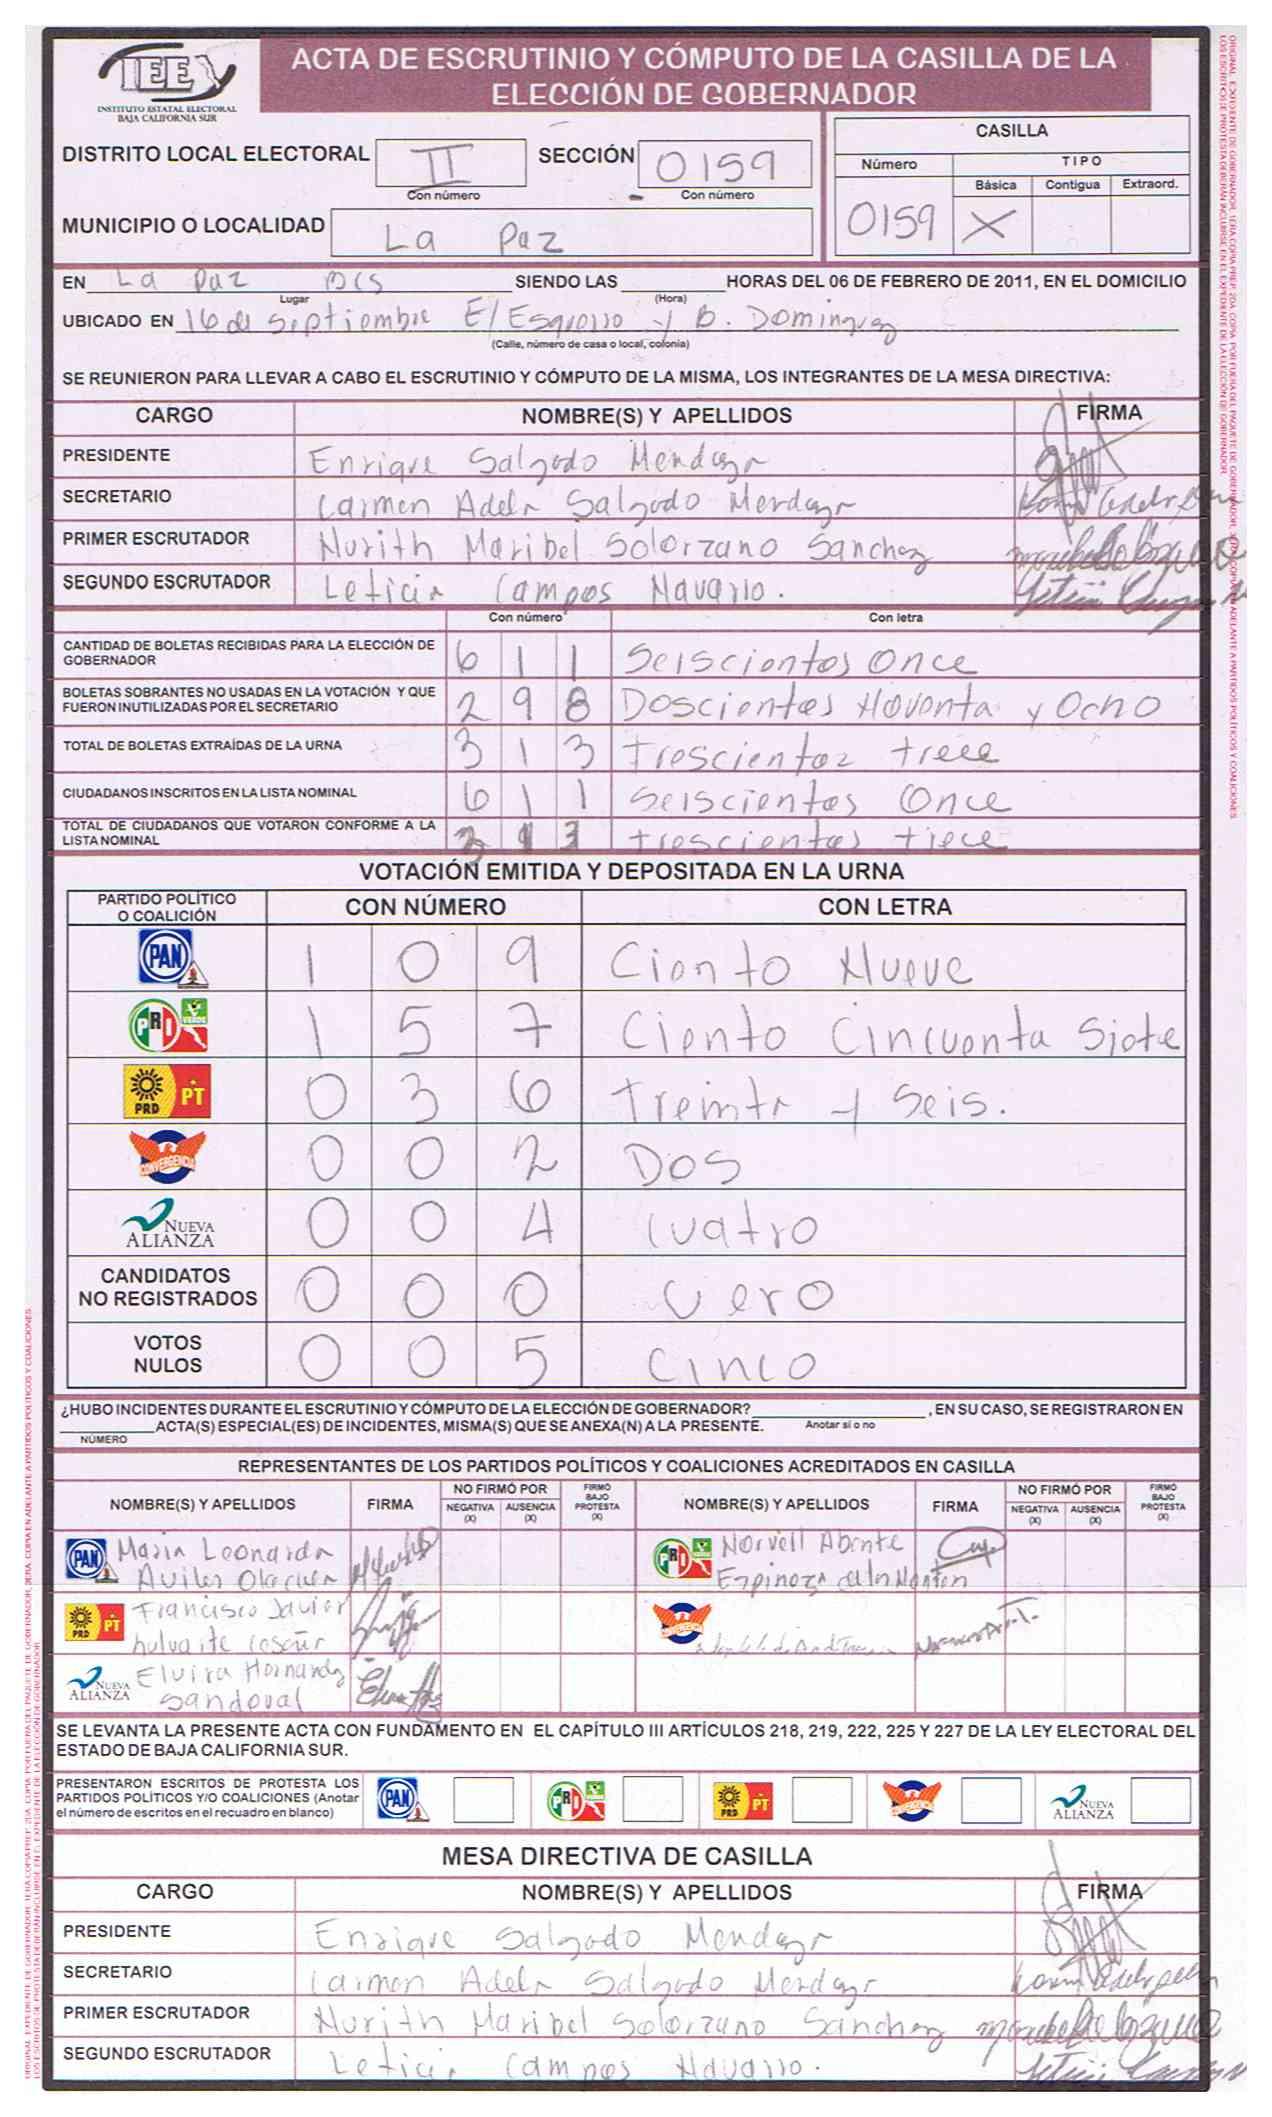 IEE
INSTITUTO ESTATAL ELECTORAL
BAJA CALIFORNIA SUR
ACTA DE ESCRUTINIO Y CÓMPUTO DE LA CASILLA DE LA
ELECCIÓN DE GOBERNADOR
DISTRITO LOCAL ELECTORAL II SECCIÓN 0159
Con número Con número
MUNICIPIO O LOCALIDAD La Paz
CASILLA
Número TIPO
Básica Contigua Extraord.
0159 X
EN La Paz BCS SIENDO LAS HORAS DEL 06 DE FEBRERO DE 2011, EN EL DOMICILIO
Lugar (Hora)
UBICADO EN 16 de Septiembre E/ y B. Dominguez
(Calle, número de casa o local, colonia)
SE REUNIERON PARA LLEVAR A CABO EL ESCRUTINIO Y CÓMPUTO DE LA MISMA, LOS INTEGRANTES DE LA MESA DIRECTIVA:
CARGO NOMBRE(S) Y APELLIDOS FIRMA
PRESIDENTE Enrique Salgado
SECRETARIO Carmen Adela Salgado
PRIMER ESCRUTADOR Nurith Maribel Solorzano Sanchez
SEGUNDO ESCRUTADOR Leticia Campos Navarro.
Con número Con letra
CANTIDAD DE BOLETAS RECIBIDAS PARA LA ELECCIÓN DE
GOBERNADOR 6 1 1 Seiscientos Once
BOLETAS SOBRANTES NO USADAS EN LA VOTACIÓN Y QUE
FUERON INUTILIZADAS POR EL SECRETARIO 2 9 8 Doscientos Noventa y Ocho
TOTAL DE BOLETAS EXTRAÍDAS DE LA URNA 3 1 3 Trescientos trece
CIUDADANOS INSCRITOS EN LA LISTA NOMINAL 6 1 1 Seiscientos Once
TOTAL DE CIUDADANOS QUE VOTARON CONFORME A LA
LISTA NOMINAL 3 1 3 trescientos trece
VOTACIÓN EMITIDA Y DEPOSITADA EN LA URNA
PARTIDO POLÍTICO
O COALICIÓN CON NÚMERO CON LETRA
PAN 1 0 9 Ciento Nueve
PRI VERDE 1 5 7 Ciento Cincuenta Siete
PRD PT 0 3 6 Treinta y Seis.
CONVERGENCIA 0 0 2 Dos
NUEVA ALIANZA 0 0 4 Cuatro
CANDIDATOS
NO REGISTRADOS 0 0 0 Cero
VOTOS
NULOS 0 0 5 Cinco
¿HUBO INCIDENTES DURANTE EL ESCRUTINIO Y CÓMPUTO DE LA ELECCIÓN DE GOBERNADOR? , EN SU CASO, SE REGISTRARON EN
ACTA(S) ESPECIAL(ES) DE INCIDENTES, MISMA(S) QUE SE ANEXA(N) A LA PRESENTE. Anotar sí o no
NÚMERO
REPRESENTANTES DE LOS PARTIDOS POLÍTICOS Y COALICIONES ACREDITADOS EN CASILLA
NOMBRE(S) Y APELLIDOS FIRMA NO FIRMÓ POR NEGATIVA (X) AUSENCIA (X) FIRMÓ BAJO PROTESTA (X) NOMBRE(S) Y APELLIDOS FIRMA NO FIRMÓ POR NEGATIVA (X) AUSENCIA (X) FIRMÓ BAJO PROTESTA (X)
PAN Maria Leonarda
Aviles
PRI VERDE Norvell
Espinoza
PRD PT Francisco Javier
CONVERGENCIA
NUEVA ALIANZA Elvira Hernandez
Sandoval
SE LEVANTA LA PRESENTE ACTA CON FUNDAMENTO EN EL CAPÍTULO III ARTÍCULOS 218, 219, 222, 225 Y 227 DE LA LEY ELECTORAL DEL
ESTADO DE BAJA CALIFORNIA SUR.
PRESENTARON ESCRITOS DE PROTESTA LOS
PARTIDOS POLÍTICOS Y/O COALICIONES (Anotar
el número de escritos en el recuadro en blanco)
PAN PRI VERDE PRD PT CONVERGENCIA NUEVA ALIANZA
MESA DIRECTIVA DE CASILLA
CARGO NOMBRE(S) Y APELLIDOS FIRMA
PRESIDENTE Enrique Salgado
SECRETARIO Carmen Adela Salgado
PRIMER ESCRUTADOR Nurith Maribel Solorzano Sanchez
SEGUNDO ESCRUTADOR Leticia Campos Navarro.